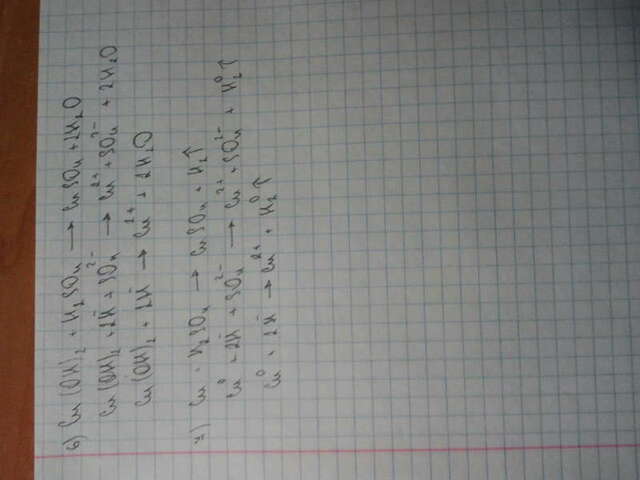 6) Cu(OH)₂ + H₂SO₄ ⟶ CuSO₄ + 2H₂O
Cu(OH)₂ + 2H⁺ + SO₄²⁻ ⟶ Cu²⁺ + SO₄²⁻ + 2H₂O
Cu(OH)₂ + 2H⁺ ⟶ Cu²⁺ + 2H₂O
7) Cu + H₂SO₄ ⟶ CuSO₄ + H₂↑
Cu⁰ + 2H⁺ + SO₄²⁻ ⟶ Cu²⁺ + SO₄²⁻ + H₂⁰↑
Cu⁰ + 2H⁺ ⟶ Cu²⁺ + H₂⁰↑